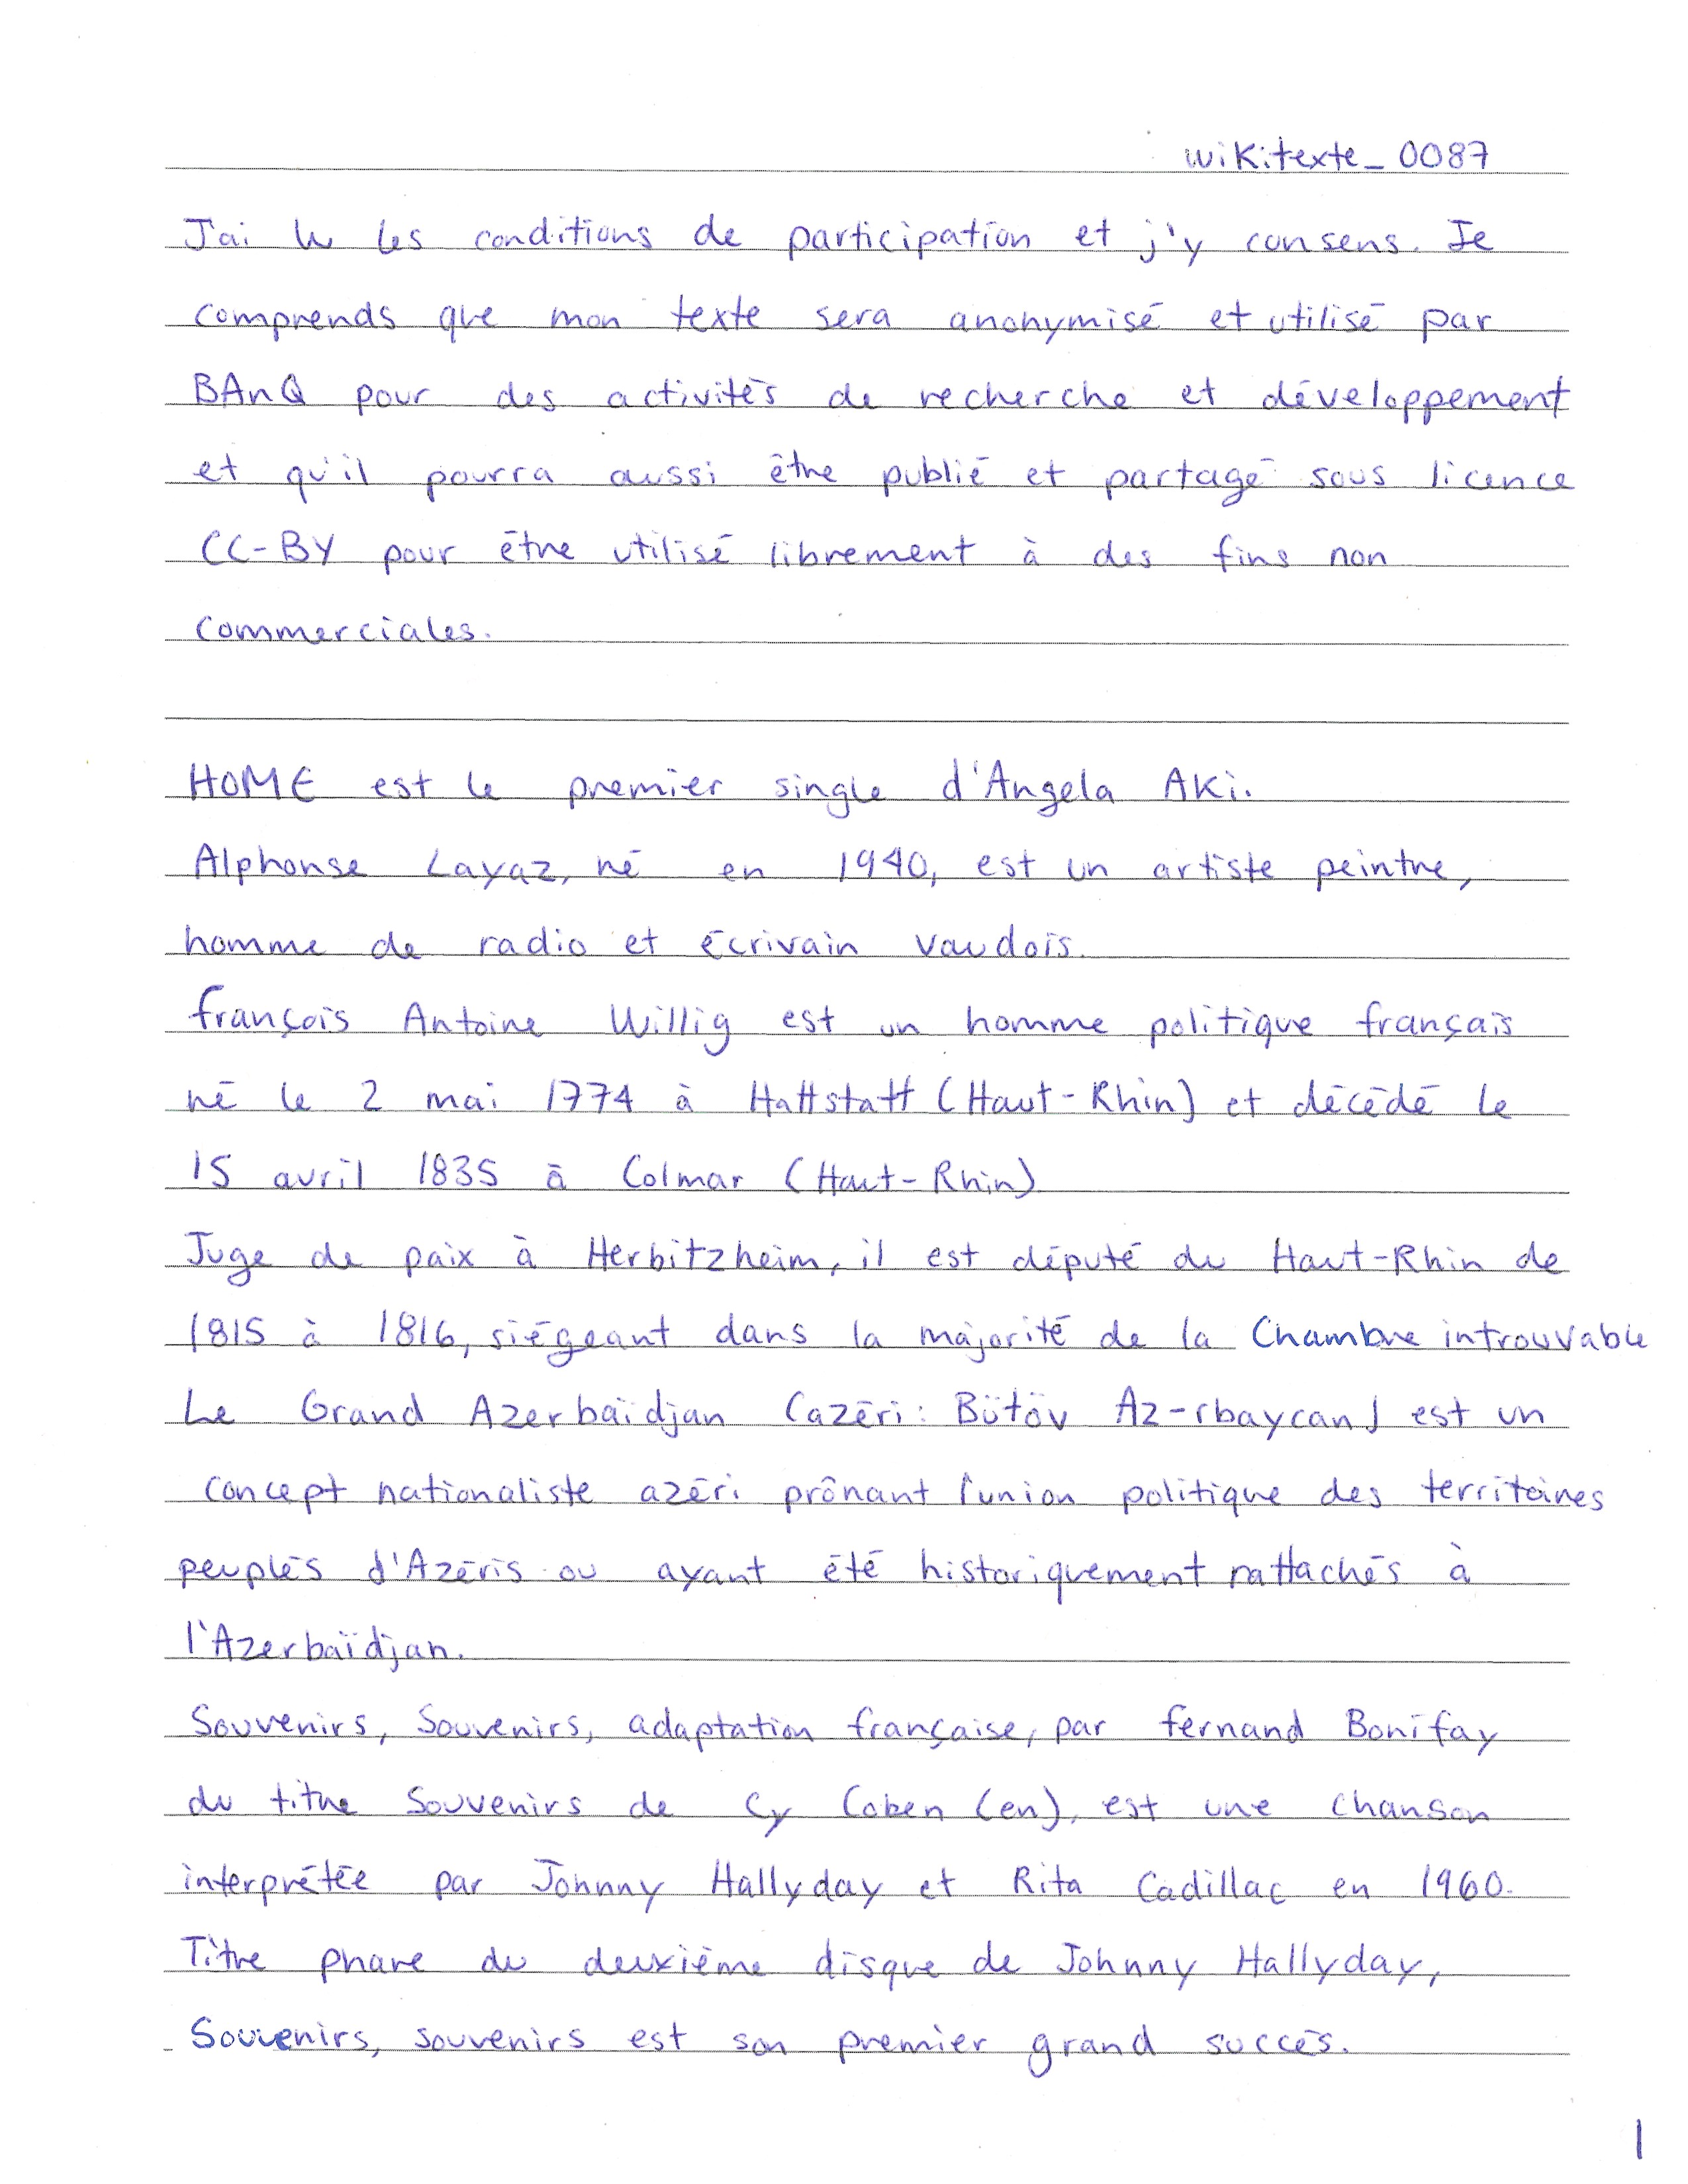 wikitexte_0087
J'ai lu les conditions de participation et j'y consens. Je
comprends que mon texte sera anonymisé et utilisé par
BAnQ pour des activités de recherche et développement
et qu'il pourra aussi être publié et partagé sous licence
CC-BY pour être utilisé librement à des fins non
commerciales.
HOME est le premier single d'Angela Aki.
Alphonse Layaz, né en 1940, est un artiste peintre,
homme de radio et écrivain vaudois.
François Antoine Willig est un homme politique français
né le 2 mai 1774 à Hattstatt (Haut-Rhin) et décédé le
15 avril 1835 à Colmar (Haut-Rhin)
Juge de paix à Herbitzheim, il est député du Haut-Rhin de
1815 à 1816, siégeant dans la majorité de la Chambre introuvable
Le Grand Azerbaïdjan (azéri: Bütöv Az-rbaycan) est un
concept nationaliste azéri prônant l'union politique des territoires
peuplés d'Azéris ou ayant été historiquement rattachés à
l'Azerbaïdjan.
Souvenirs, Souvenirs, adaptation française, par Fernand Bonifay
du titre Souvenirs de Cy Coben (en), est une chanson
interprétée par Johnny Hallyday et Rita Cadillac en 1960.
Titre phare du deuxième disque de Johnny Hallyday,
Souvenirs, souvenirs est son premier grand succès.
1